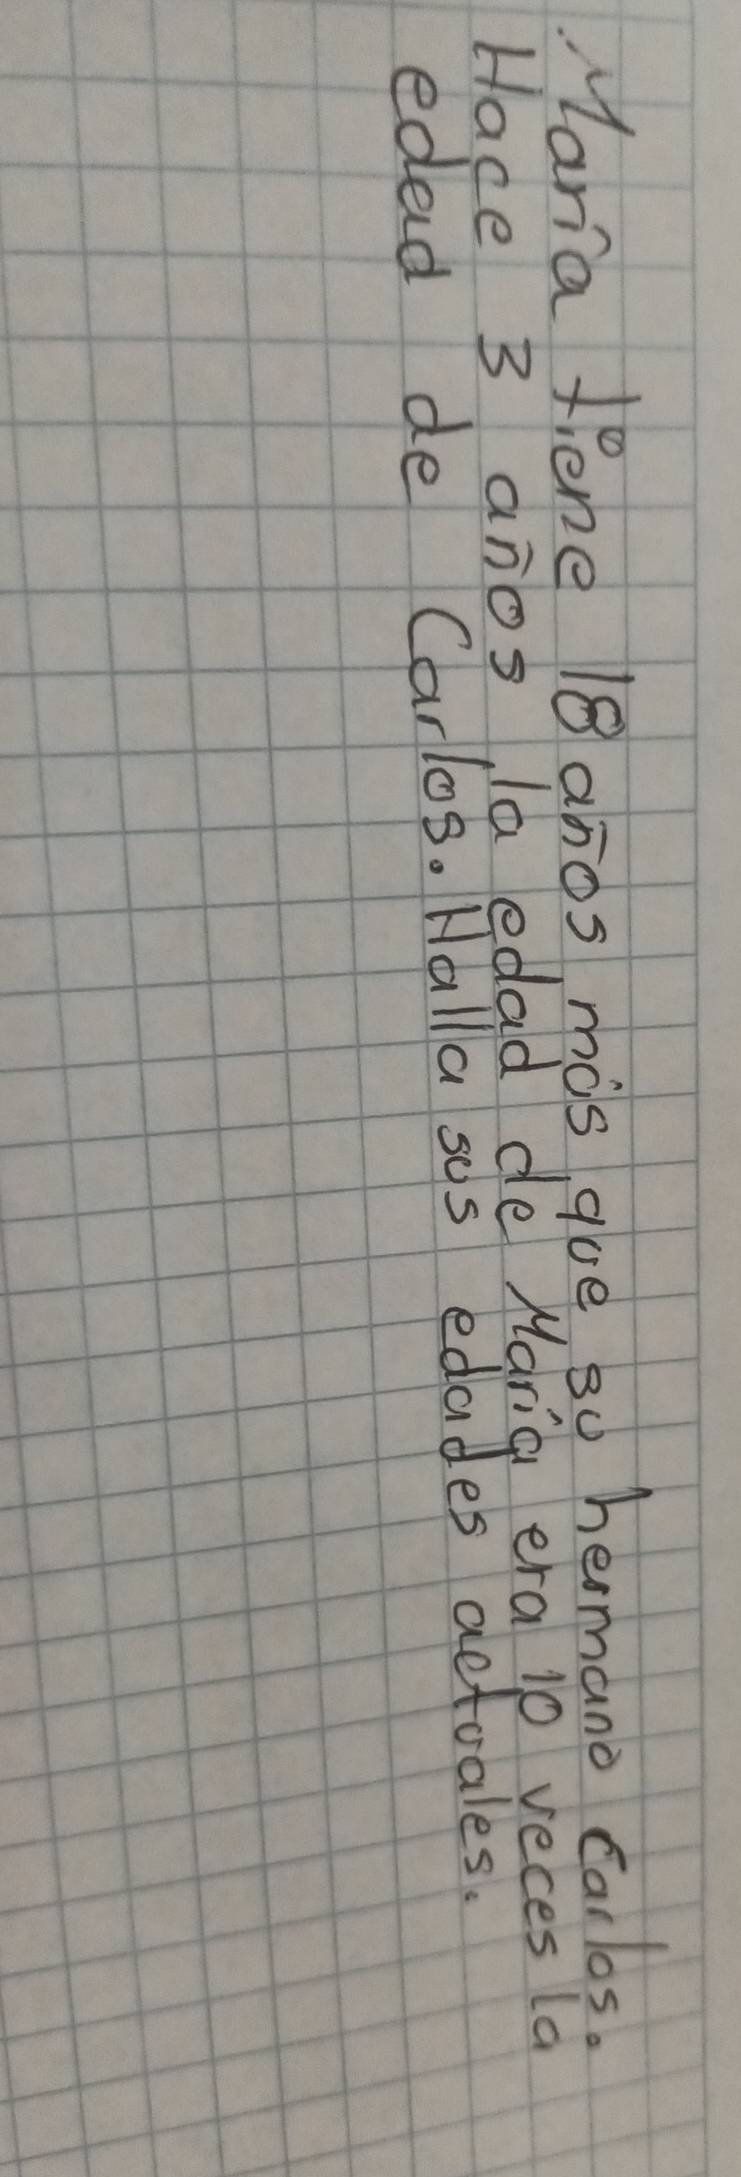 María tiene 18 años más que su hermano Carlos.
Hace 3 años, la edad de María era 10 veces la
edad de Carlos. Halla sus edades actuales.